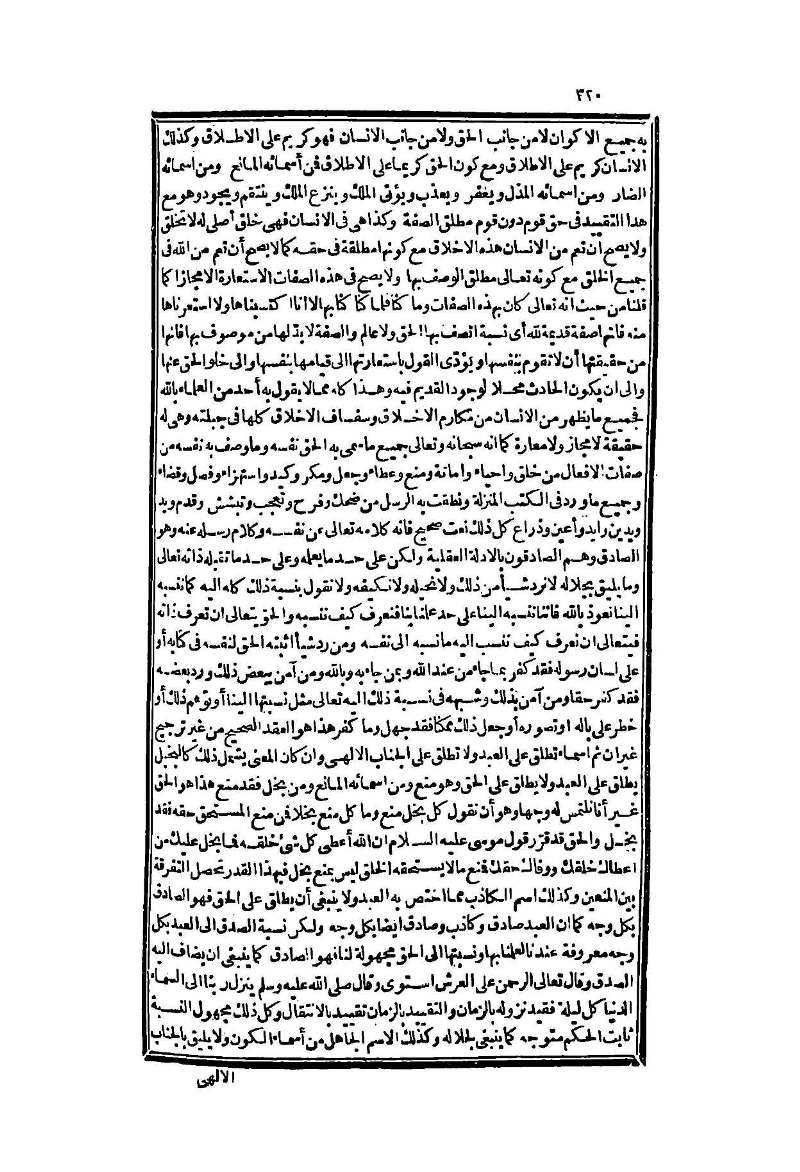 ٣٢٠
به جميع الاكوان لا من جانب الحق ولا من جانب الانسان فهو كريم على الاطلاق وكذلك
الانسان كريم على الاطلاق ومع كون الحق كريما على الاطلاق فن أسمائه المانع ومن اسمائه
الضار ومن اسمائه المذل ويغفر ويعذب ويؤتى الملك وينزع الملك وينتقم ويجود وهو مع
هذا التقييد فى حق قوم دون قوم مطلق الصفة وكذا هى فى الانسان فهى خلق أصلى له لا تخلق
ولا يصح أن تم من الانسان هذه الاخلاق مع كونها مطلقة فى حقه كما لا يصح أن تم من الله فى
جميع الخلق مع كونه تعالى مطلق الوصف بها ولا يصح فى هذه الصفات الاستعارة الا مجازا كما
قلنا من حيث انه تعالى كان بهذه الصفات وما كنا فلما كنا كنا بها لا انا اكتسبناها ولا استعرناها
منه فانها صفة قديمة لله أى نسبة اتصف بها الحق ولا عالم والصفة لا بد لها من موصوف بها فانها
من حقيقتها أن لا تقوم بنفسها ويؤدى القول باستعارتها الى قيامها بنفسها والى خلو الحق عنها
والى ان يكون الحادث محلا لوجود القديم فيه وهذا كله مما لا يقول به أحد من العلماء بالله
فجميع ما يظهر من الانسان من مكارم الاخلاق وسفساف الاخلاق كلها فى جبلته وهى له
حقيقة لا مجاز ولا معارة كما انه سبحانه وتعالى جميع ما سمى به الحق نفسه وما وصف به نفسه من
صفات الافعال من خلق واحياء وامانة ومنع وعطاء وجعل ومكر وكيد واستهزاء وفصل وقضاء
وجميع ما ورد فى الكتب المنزلة ونطقت به الرسل من ضحك وفرح وتعجب وتبشش وقدم ويد
ويدين وايد وأعين وذراع كل ذلك نعت صحيح فانه كلامه تعالى عن نفسه وكلام رسله عنه وهو
الصادق وهم الصادقون بالادلة العقلية ولكن على حد ما يعلمه وعلى حد ما تقبله ذاته تعالى
وما يليق بجلاله لا نرد شيأ من ذلك ولا نحيله ولا نكيفه ولا نقول بنسبة ذلك كله اليه كما ننسبه
الينا نعوذ بالله فاننا ننسبه الينا على حد علمنا بنا فنعرف كيف ننسبه والحق يتعالى ان تعرف ذاته
فيتعالى ان نعرف كيف ننسب اليه ما نسبه الى نفسه ومن رد شيأ اثبته الحق لنفسه فى كتابه أو
على لسان رسوله فقد كفر بما جاء من عند الله وبمن جاء به وبالله ومن آمن ببعض ذلك ورد بعضه
فقد كفر حقا ومن آمن بذلك وشبهه فى نسبة ذلك اليه تعالى مثل نسبتها الينا أو توهم ذلك أو
خطر على باله او تصوره أو جعل ذلك ممكنا فقد جهل وما كفر هذا هو العقد الصحيح من غير ترجيح
غير ان ثم اسماء تطلق على العبد ولا تطلق على الجناب الالهى وان كان المعنى يشمل ذلك كالبخيل
يطلق على العبد ولا يطلق على الحق وهو منع ومن اسمائه المانع ومن بخل فقد منع هذا هو الحق
غير أنا نلتمس له وجها وهو أن نقول كل بخل منع وما كل منع بخلا فن منع المستحق حقه فقد
بخل والحق قد قرر قول موسى عليه السلام ان الله أعطى كل شئ خلقه فما بخل عليك من
اعطاك خلقك ووفاك حقك فنع ما لا يستحقه الخلق ليس بمنع بخل فبهذا القدر تحصل التفرقة
بين المنعين وكذلك اسم الكاذب مما اختص به العبد ولا ينبغى أن يطلق على الحق فهو الصادق
بكل وجه كما ان العبد صادق وكاذب وصادق ايضا بكل وجه ولكن نسبة الصدق الى العبد بكل
وجه معروفة عندنا لعلمنا بها ونسبتها الى الحق مجهولة لنا فهو الصادق كما ينبغى ان يضاف اليه
الصدق وقال تعالى الرحمن على العرش استوى وقال صلى الله عليه وسلم ينزل ربنا الى السماء
الدنيا كل ليلة فقيد نزوله بالزمان والتقييد بالزمان تقييد بالانتقال وكل ذلك مجهول النسبة
ثابت الحكم متوجه كما ينبغى لجلاله وكذلك الاسم الجاهل من أسماء الكون ولا يليق بالجناب
الالهى